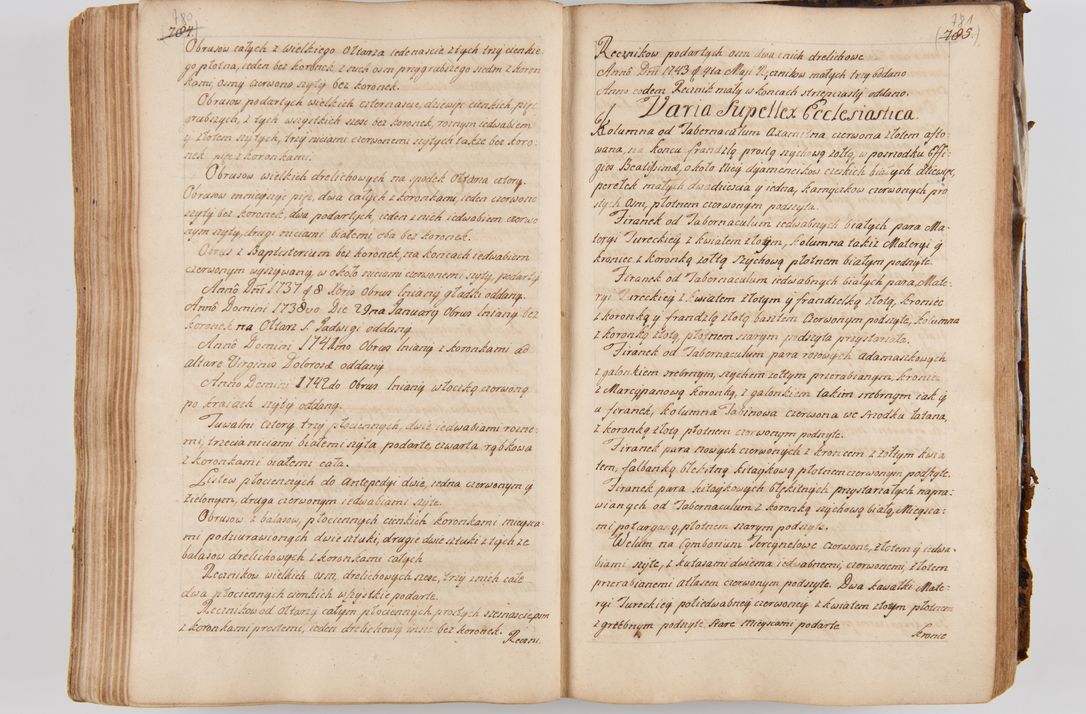 780
(784)
Obrusow całych z wielkiego Ołtarza iedenascie z tych trzy cienkie
go płotna, ieden bez koronek, z nich osm przygrubszego siedm z koron
kami, osmy czerwono szyty bez koronek.
Obrusow podartych wielkich czternascie, dziewięc cienkich, pięc
grubszych, z tych wszystkich szesc bez koronek, roznym iedwabiem
y złotem szytych, trzy niciami czerwonemi szytych także bez koro:
nek pięc z koronkami.
Obrusow wielkich drelichowych na spodek Ołtarza cztery.
Obrusow mnieyszych pięc, dwa całych z koronkami, ieden czerwono
szyty bez koronek, dwa podartych, ieden z nich iedwabiem czerwo
nym szyty, drugi niciami białemi, oba bez koronek.
Obrus z Baptisterium bez koronek, na koncach iedwabiem
czerwonym wyszywany, w około niciami czerwonemi szyty, podarty
Anno Dni 1737 d 8 Xbris Obrus lniany gładki oddany.
Anno Domini 1738vo Die 29na January Obrus lniany bez
koronek na Ołtarz S. Jadwigi oddany
Anno Domini 1741mo Obrus lniany z koronkami ad
altare Virginis Dolorosæ oddany
Anno Domini 1742do Obrus lniany włoczką czerwoną
po kraiach szyty oddany.
Tuwalni cztery, trzy płociennych, dwie iedwabiami rozne:
mi, trzecia niciami białemi szyta podarte, czwarta rąbkowa
z koronkami białemi cała.
Listew płociennych do Antepedyi dwie, iedna czerwonym y
zielonym, druga czerwonym iedwabiami szyte.
Obrusow z balasow, płociennych cienkich koronkami mieysca:
mi podziurawionych dwie sztuki, drugie dwie sztuki z tych ze
balasow drelichowych z koronkami całych
Ręcznikow wielkich osm, drelichowych szesc, trzy z nich całe
dwa płociennych cienkich wszystkie podarte.
Ręcznikow od Ołtarzy całym płociennych prostych szesnascie, osm
z koronkami prostemi, ieden drelichowy bez koronek.
Ręczni.
781
(785)
Ręcznikow podartych osm dwa z nich drelichowe
Anno Dni 1743 d 4ta Maji Ręcznikow małych trzy oddano
Anno eodem Ręcznik mały w koncach strzepiasty oddano.
Varia Supellex Ecclesiastica.
Kolumna od Tabernaculum Axamitna czerwona złotem afto:
wana, na koncu frandzlą prostą szychową zołtą, w posrzodku Effi:
gies Beatissimæ, około Niey dyamencikow czeskich białych dziewięc,
perełek małych dwadziescia y iedna, kamyczkow czerwonych pro
stych osm, płotnem czerwonym podszyta.
Firanek od Tabernaculum iedwabnych białych para Ma:
teryi Tureckiey z kwiatem złotym, kolumna także Materyi y
kroniec z koronką zołtą szychową płotnem białym podszyte.
Firanek od Tabernaculum iedwabnych białych para, Mate:
ryi Tureckiey z kwiatem złotym y frandzelką złotą, kroniec
z koronką y frandzlą złotą bagzłem czerwonym podszyte, kolumna
z koronką złotą, płotnem szarym podszyta przystarzała.
Firanek od Tabernaculum para rozowych adamaszkowych
z galonkiem srebrnym, szychem zołtym przerabianym, kroniec
z Marcypanową koronką, z galonkiem takim srebrnym iak y
u firanek, kolumna Tabinowa czerwona we srzodku łatana,
z koronką złotą płotnem czerwonym podszyte.
Firanek para nowych czerwonych z krońcem z zołtym kwia
tem, falbanką błękitną kitaykową płotnem czerwonym podszyte.
Firanek para kitaykowych błękitnych przystarzałych napra:
wianych od Tabernaculum z koronką szychową białą, Mieysca:
mi potarganą, płotnem szarym podszyte.
Welum na Cymborium Tercynelowe czerwone, złotem y iedwa:
biami szyte, z kutasami dwiema iedwabnemi, czerwonemi, złotem
przerabianemi atlasem czerwonym podszyte. Dwa kawałki Mate:
ryi Tureckiey połiedwabney czerwoney z kwiatem złotym płotnem
zgrzebnym podszyte stare mieyscami podarte
kronce